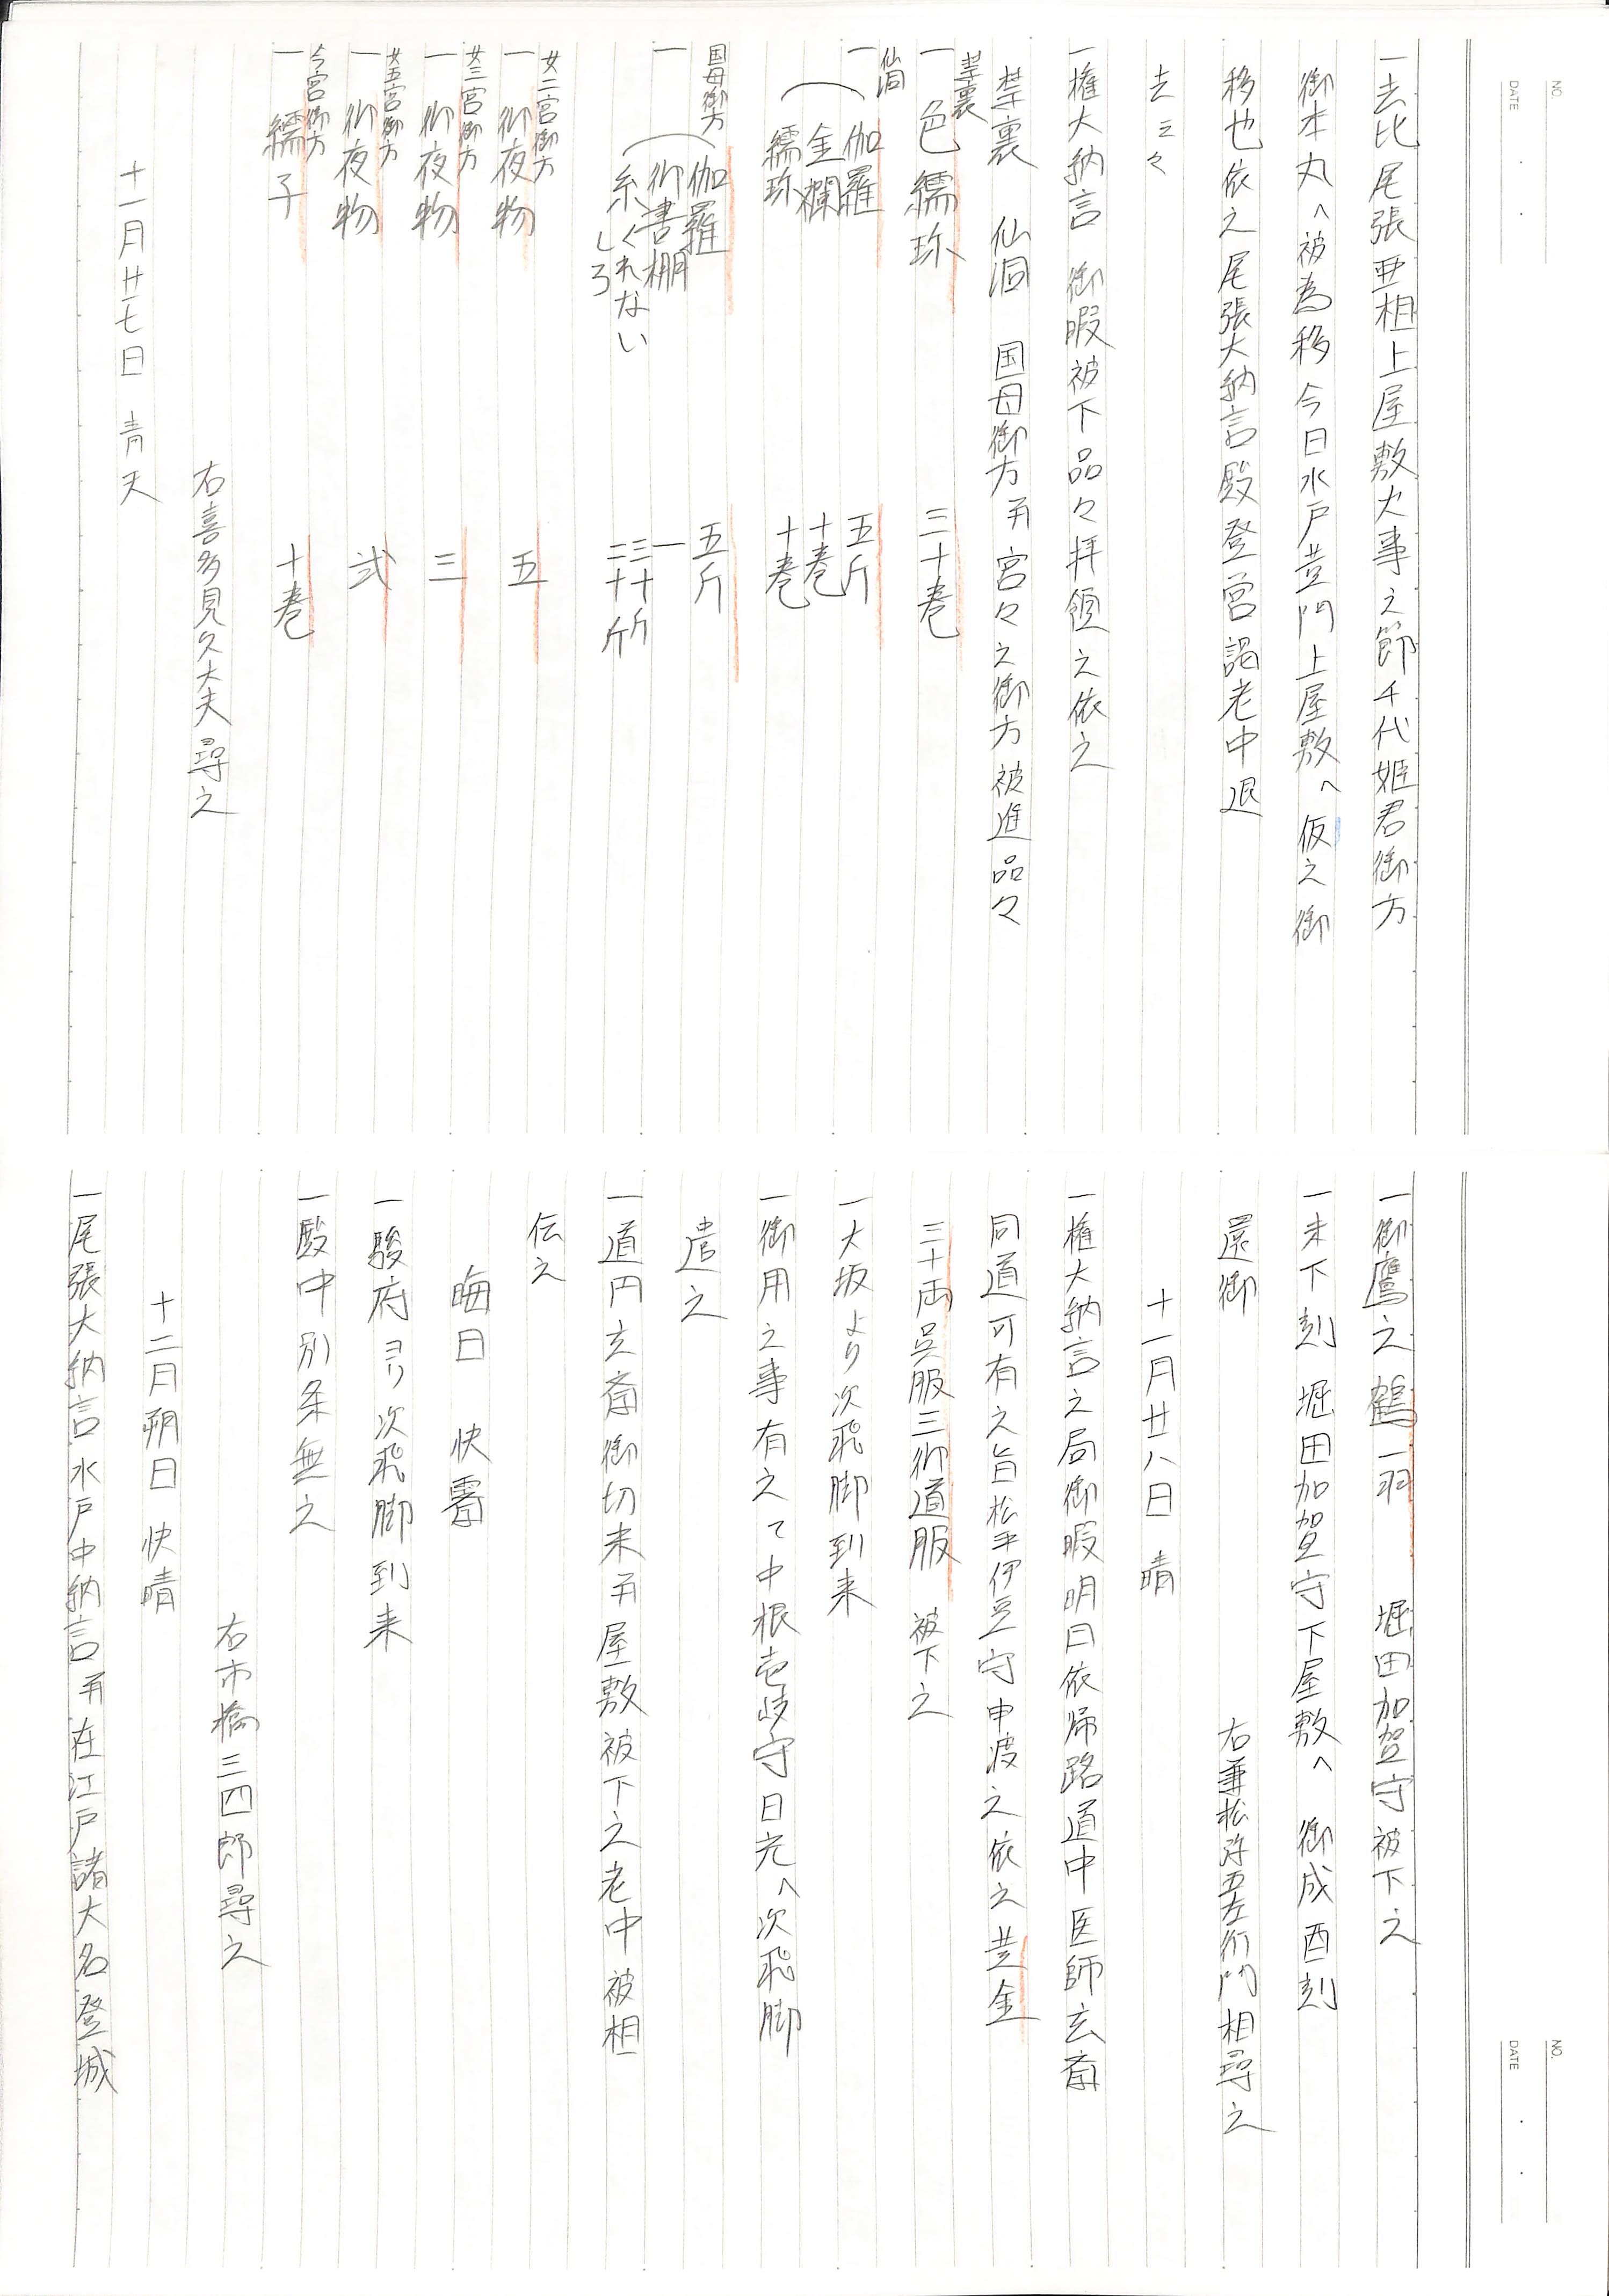 NO.
DATE
一去比尾張亜相上屋敷火事之節千代姫君御方
御本丸へ被為移今日水戸黄門上屋敷へ仮之御
移也依之尾張大納言殿登営謁老中退
去云々
一権大納言 御暇被下品々拝領之依之
禁裏 仙洞 国母御方并宮々之御方被進品々
禁裏
一色繻珍 三十巻
仙洞
一伽羅 五斤
金襴 十巻
繻珍 十巻
国母御方
一伽羅 五斤
御書棚 一
糸くれない 三十斤
しろ 二十斤
女二宮御方
一御夜物 五
女三宮御方
一御夜物 三
女五宮御方
一御夜物 弐
今宮御方
一繻子 十巻
右喜多見久大夫尋之
十一月廿七日 青天
NO.
DATE
一御鷹之鶴一羽 堀田加賀守被下之
一未下刻 堀田加賀守下屋敷へ 御成酉刻
還御 右兼松弥五左衛門相尋之
十一月廿八日 晴
一権大納言之局御暇明日依帰路道中医師玄斎
同道可有之旨松平伊豆守申渡之依之黄金
三十両呉服三御道服 被下之
一大坂より次飛脚到来
一御用之事有之て中根壱岐守日光へ次飛脚
遣之
一道円玄斎御切米并屋敷被下之老中被相
伝之
晦日 快霽
一駿府ヨリ次飛脚到来
一殿中別条無之
右市橋三四郎尋之
十二月朔日 快晴
一尾張大納言水戸中納言并在江戸諸大名登城